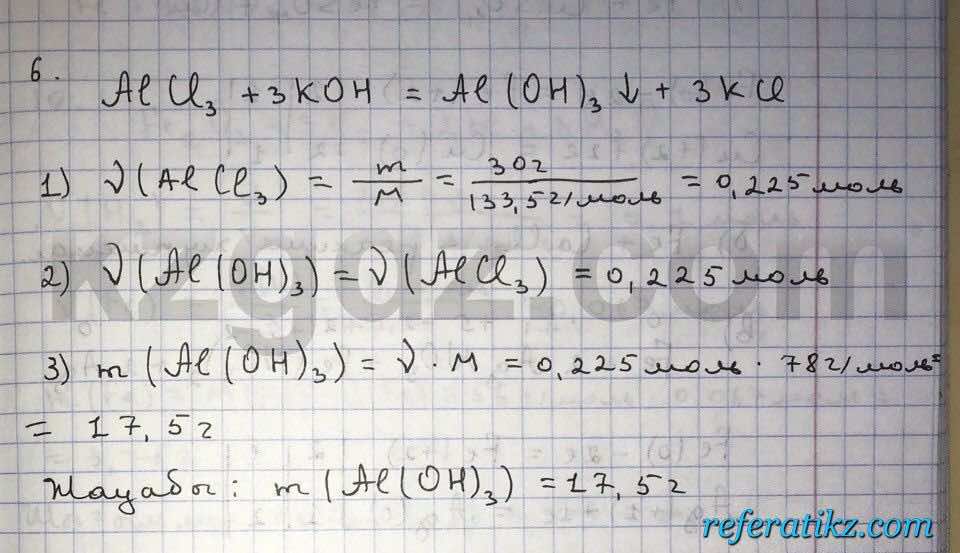 6.
AlCl₃ + 3KOH = Al(OH)₃↓ + 3KCl
1) ν(AlCl₃) = m/M = 30г/133,5г/моль = 0,225моль
2) ν(Al(OH)₃) = ν(AlCl₃) = 0,225моль
kzgdz.com
3) m(Al(OH)₃) = ν · M = 0,225моль · 78г/моль =
= 17,5г
Жауабы: m(Al(OH)₃) = 17,5г
referatikz.com